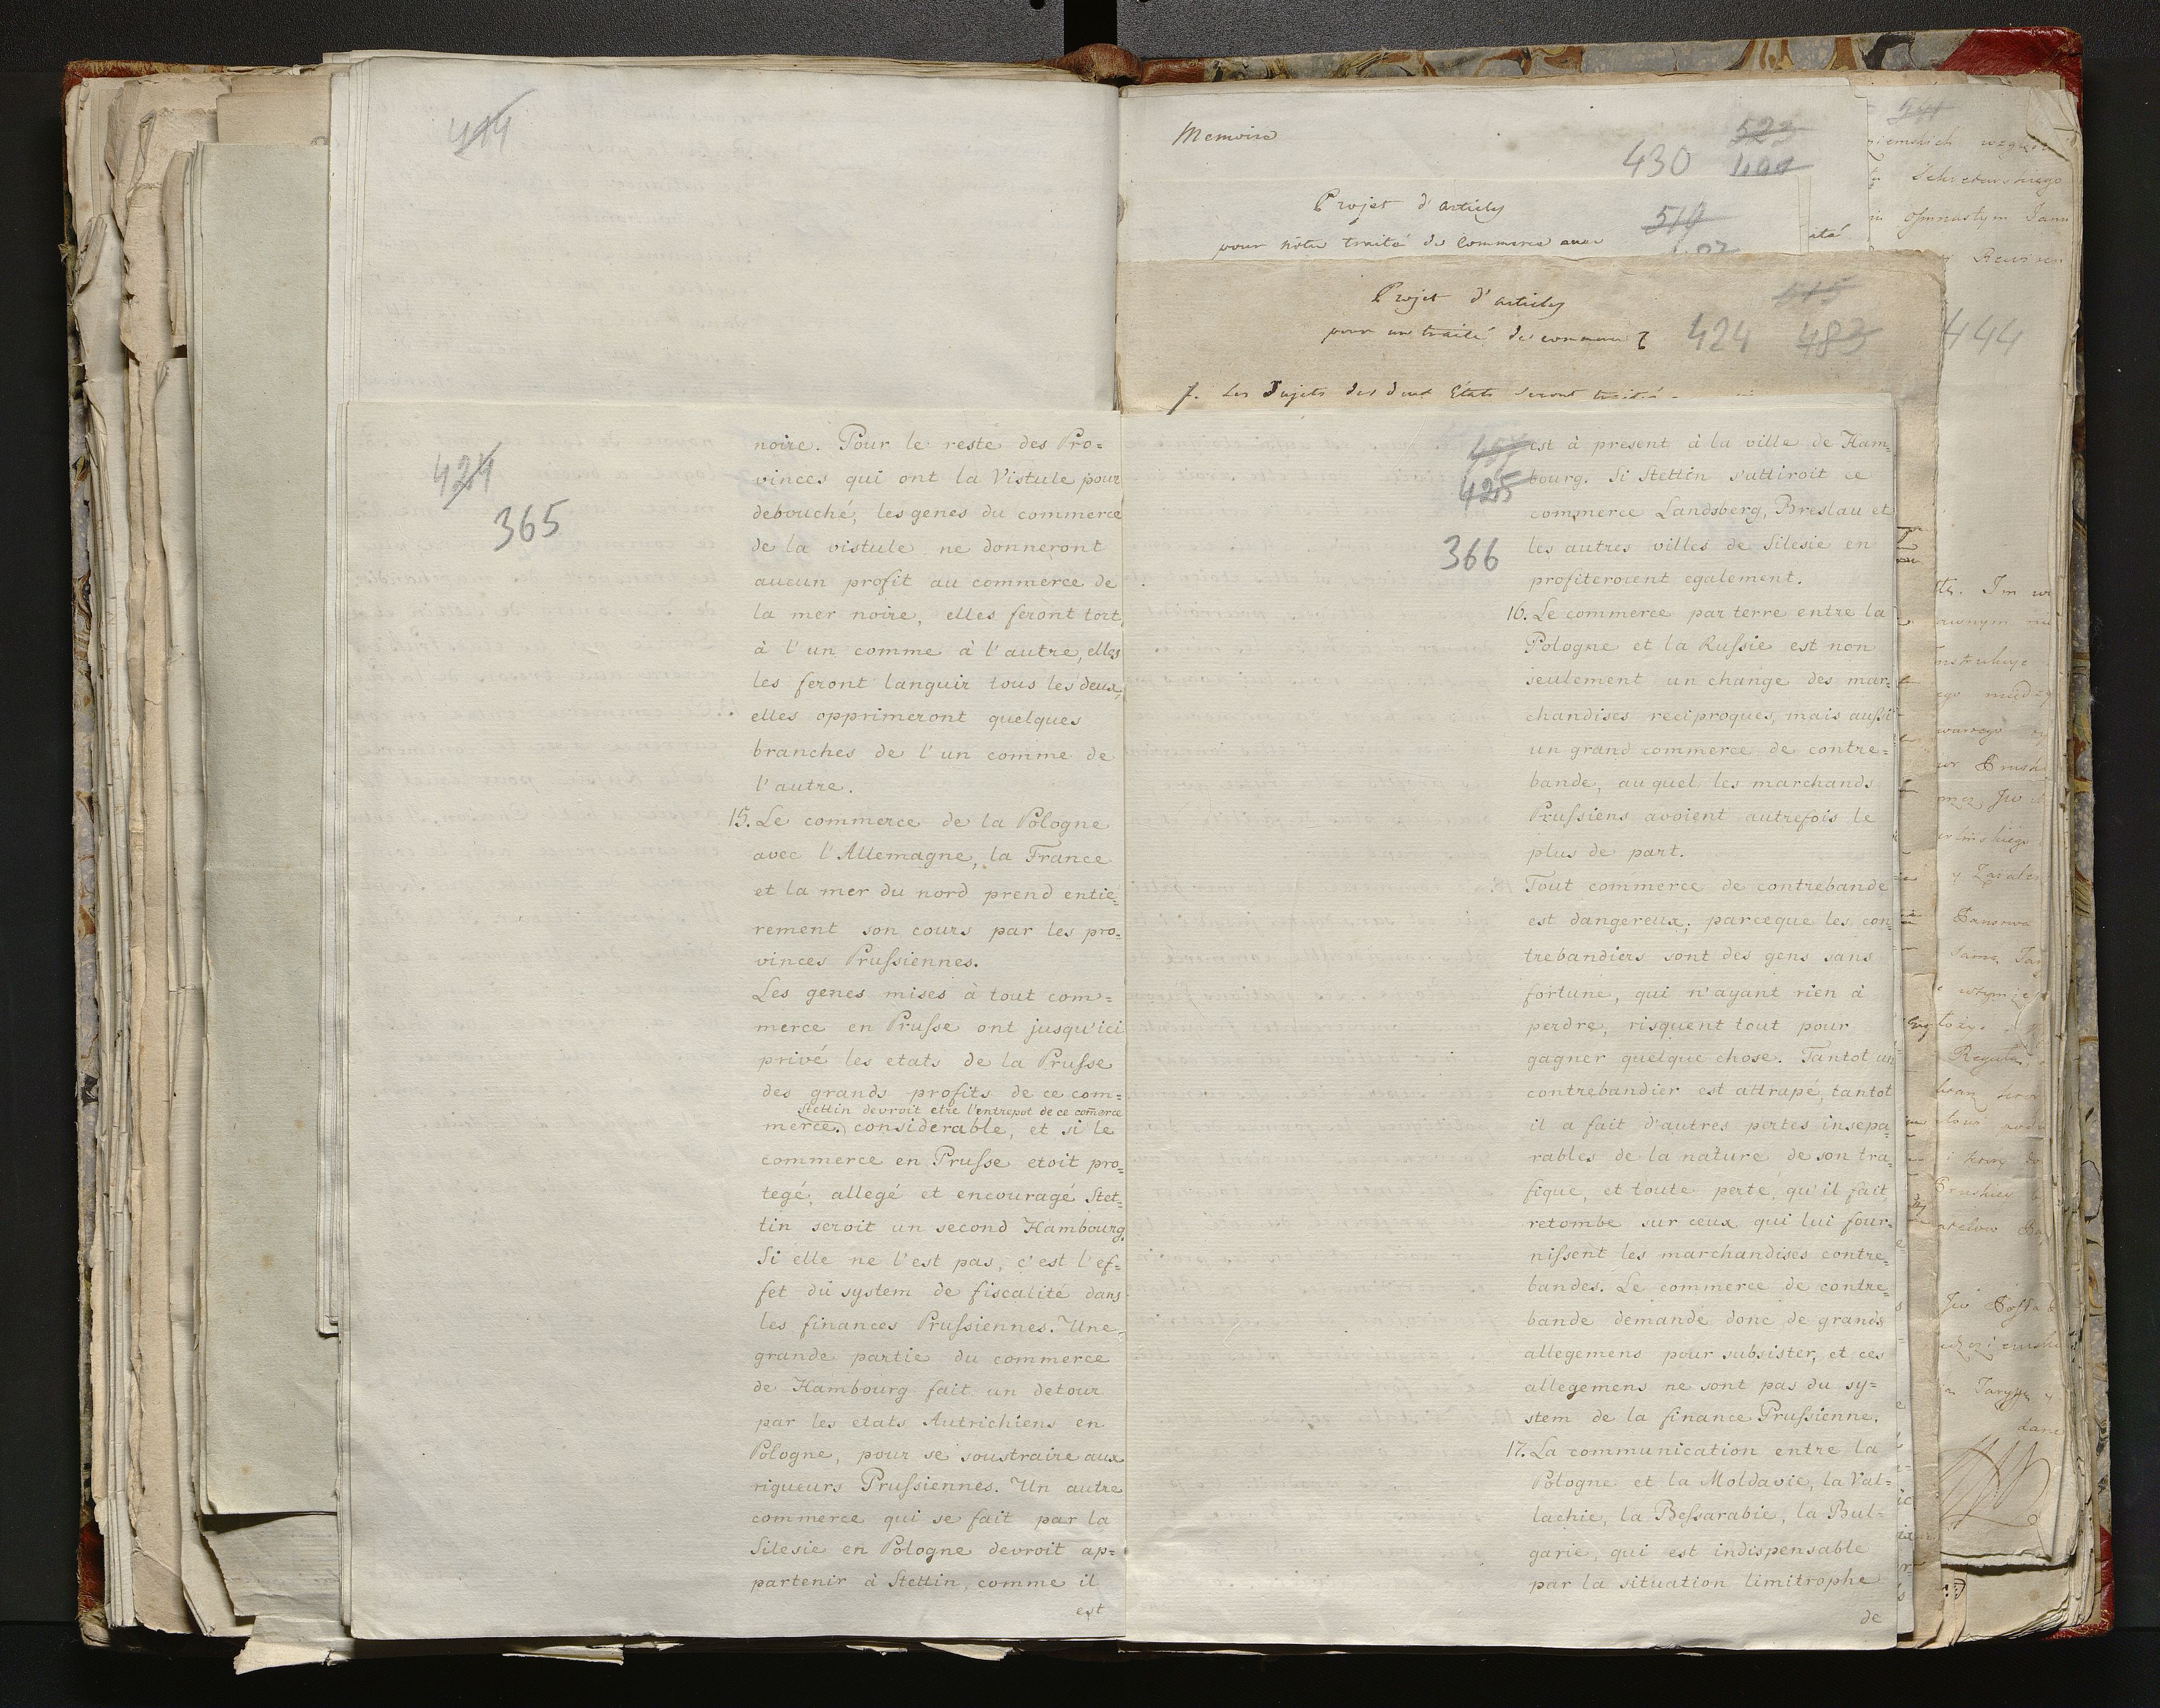 414
424
365
noire. Pour le reste des Pro=
vinces qui ont la Vistule pour
debouché, les genes du commerce
de la vistule ne donneront
aucun profit au commerce de
la mer noire, elles feront tort
à l'un comme à l'autre, elles
les feront languir tous les deux,
elles opprimeront quelques
branches de l'un comme de
l'autre.
15. Le commerce de la Pologne
avec l'Allemagne, la France
et la mer du nord prend entie=
rement son cours par les pro=
vinces Prussiennes.
Les genes mises à tout com=
merce en Prusse ont jusqu'ici
privé les etats de la Prusse
des grands profits de ce com=
Stettin devroit etre l'entrepot de ce comerce
merce. considerable, et si le
commerce en Prusse etoit pro=
tegé, allegé et encouragé Stet=
tin seroit un second Hambourg.
Si elle ne l'est pas, c'est l'ef=
fet du system de fiscalité dans
les finances Prussiennes. Une
grande partie du commerce
de Hambourg fait un detour
par les etats Autrichiens en
Pologne, pour se soustraire aux
rigueurs Prussiennes. Un autre
commerce qui se fait par la
Silesie en Pologne devroit ap=
partenir à Stettin, comme il
est
Memoire
523
430
Projet d'articles
pour nôtre traité de Commerce avec
Projet d'articles
515
pour un traité de commerce
424 483
1. Les Sujets des deux Etats seront
425
366
est à present à la ville de Ham=
bourg. Si Stettin s'attiroit ce
commerce Landsberg, Breslau et
les autres villes de Silesie en
profiteroient egalement.
16. Le commerce par terre entre la
Pologne et la Russie est non
seulement un change des mar=
chandises reciproques, mais aussi
un grand commerce de contre=
bande, auquel les marchands
Prussiens avoient autrefois le
plus de part.
Tout commerce de contrebande
est dangereux; parceque les con=
trebandiers sont des gens sans
fortune, qui n'ayant rien à
perdre, risquent tout pour
gagner quelque chose. Tantot un
contrebandier est attrapé, tantot
il a fait d'autres pertes insepa=
rables de la nature de son tra=
fique, et toute perte, qu'il fait,
retombe sur ceux qui lui four=
nissent les marchandises contre=
bandes. Le commerce de contre=
bande demande donc de grands
allegemens pour subsister, et ces
allegemens ne sont pas du sy=
stem de la finance Prussienne.
17. La communication entre la
Pologne et la Moldavie, la Val=
lachie, la Bessarabie, la Bul=
garie, qui est indispensable
par la situation limitrophe
de
444